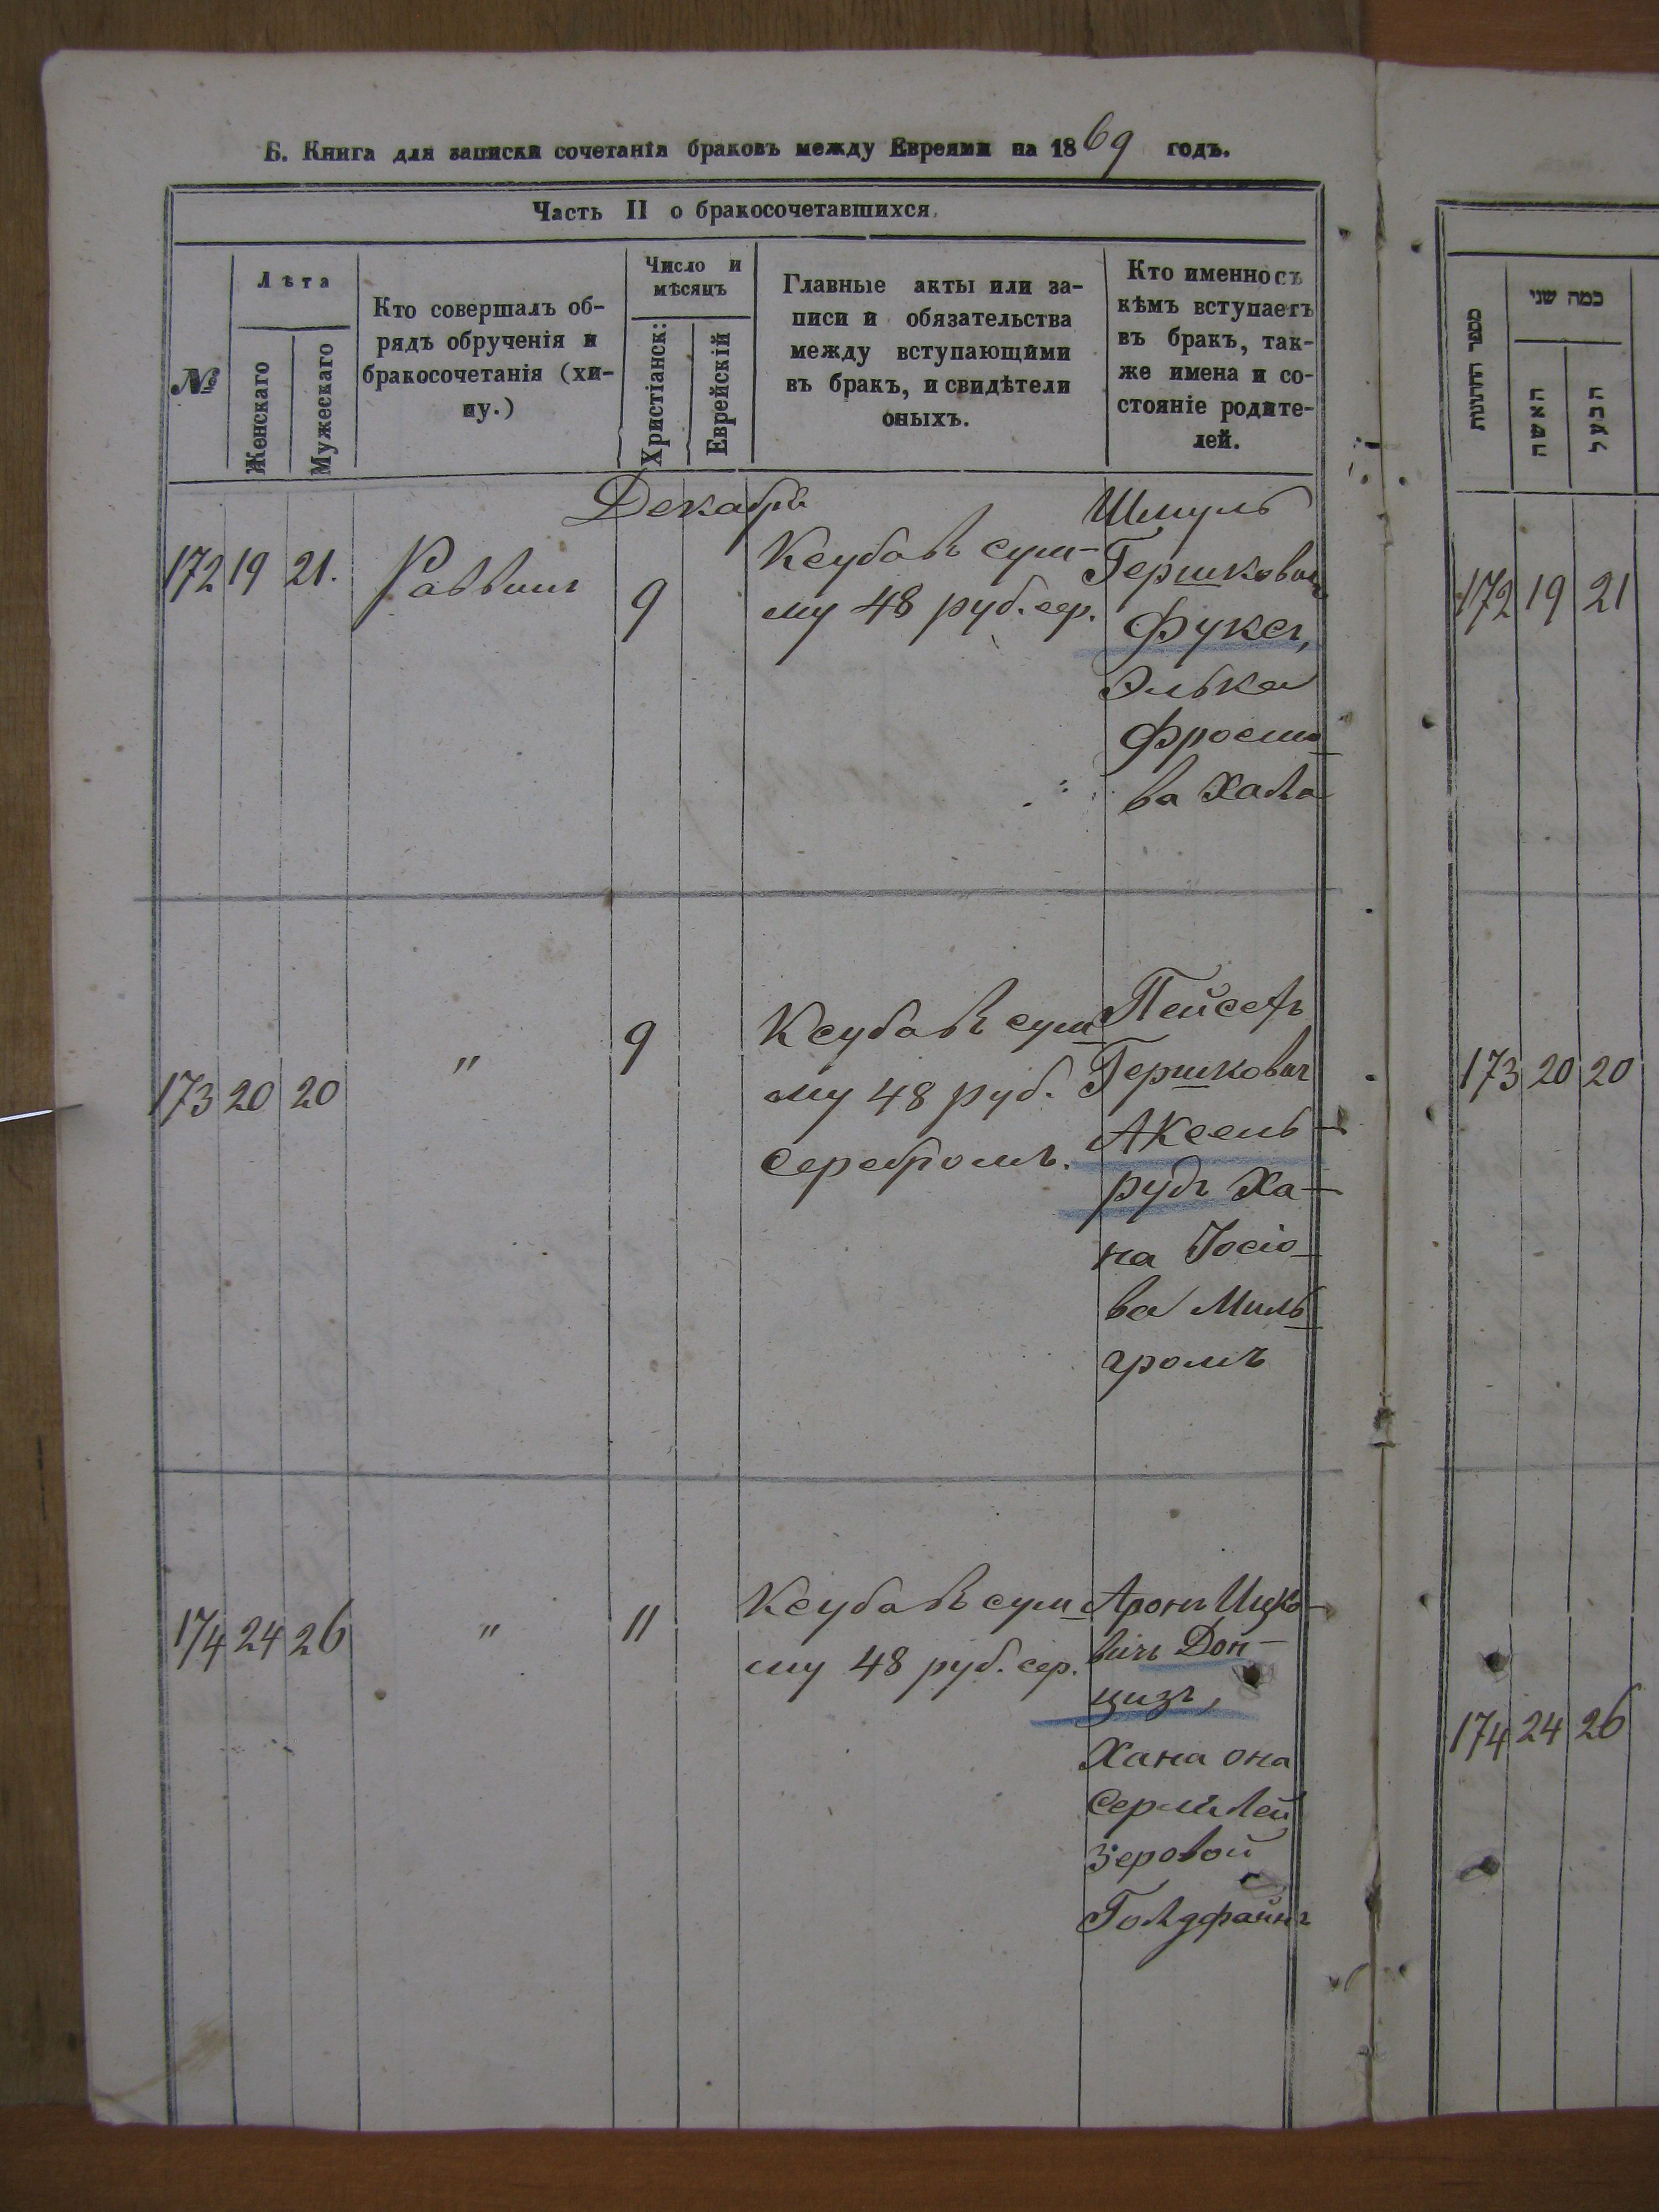 Б. Книга для записки сочетанія браковъ между Евреями на 1869 годъ.
Часть II о бракосочетавшихся.
№
Лѣта
Женскаго
Мужескаго
Кто совершалъ об-
рядъ обрученія и
бракосочетанія (хи-
пу.)
Число и
мѣсяцъ
Христіанск:
Еврейскій
Главные акты или за-
писи и обязательства
между вступающими
въ бракъ, и свидѣтели
оныхъ.
Кто именно съ
кѣмъ вступаетъ
въ бракъ, так-
же имена и со-
стояніе родите-
лей.
Декабрь
172 19 21. Раввинъ 9
Ксубав сум-
му 48 руб. сер.
Шмуль
Гершковичъ
Фуксъ,
Элька
Фроимо-
ва
173 20 20 " 9
Ксубав сум-
му 48 руб.
Серебромъ.
Пейсах
Гершкович
Аксель-
рудъ Ха-
на Іосіо-
ва Миль-
громъ
174 24 26 " 11
Ксубав сум-
му 48 руб. сер.
Аронъ Ицко-
вичъ Дон-
цизъ,
Хана она
Лей
зеровой
Голдфайнъ
מספר החתונות
כמה שני
האשה
הבעל
172 19 21
173 20 20
174 24 26